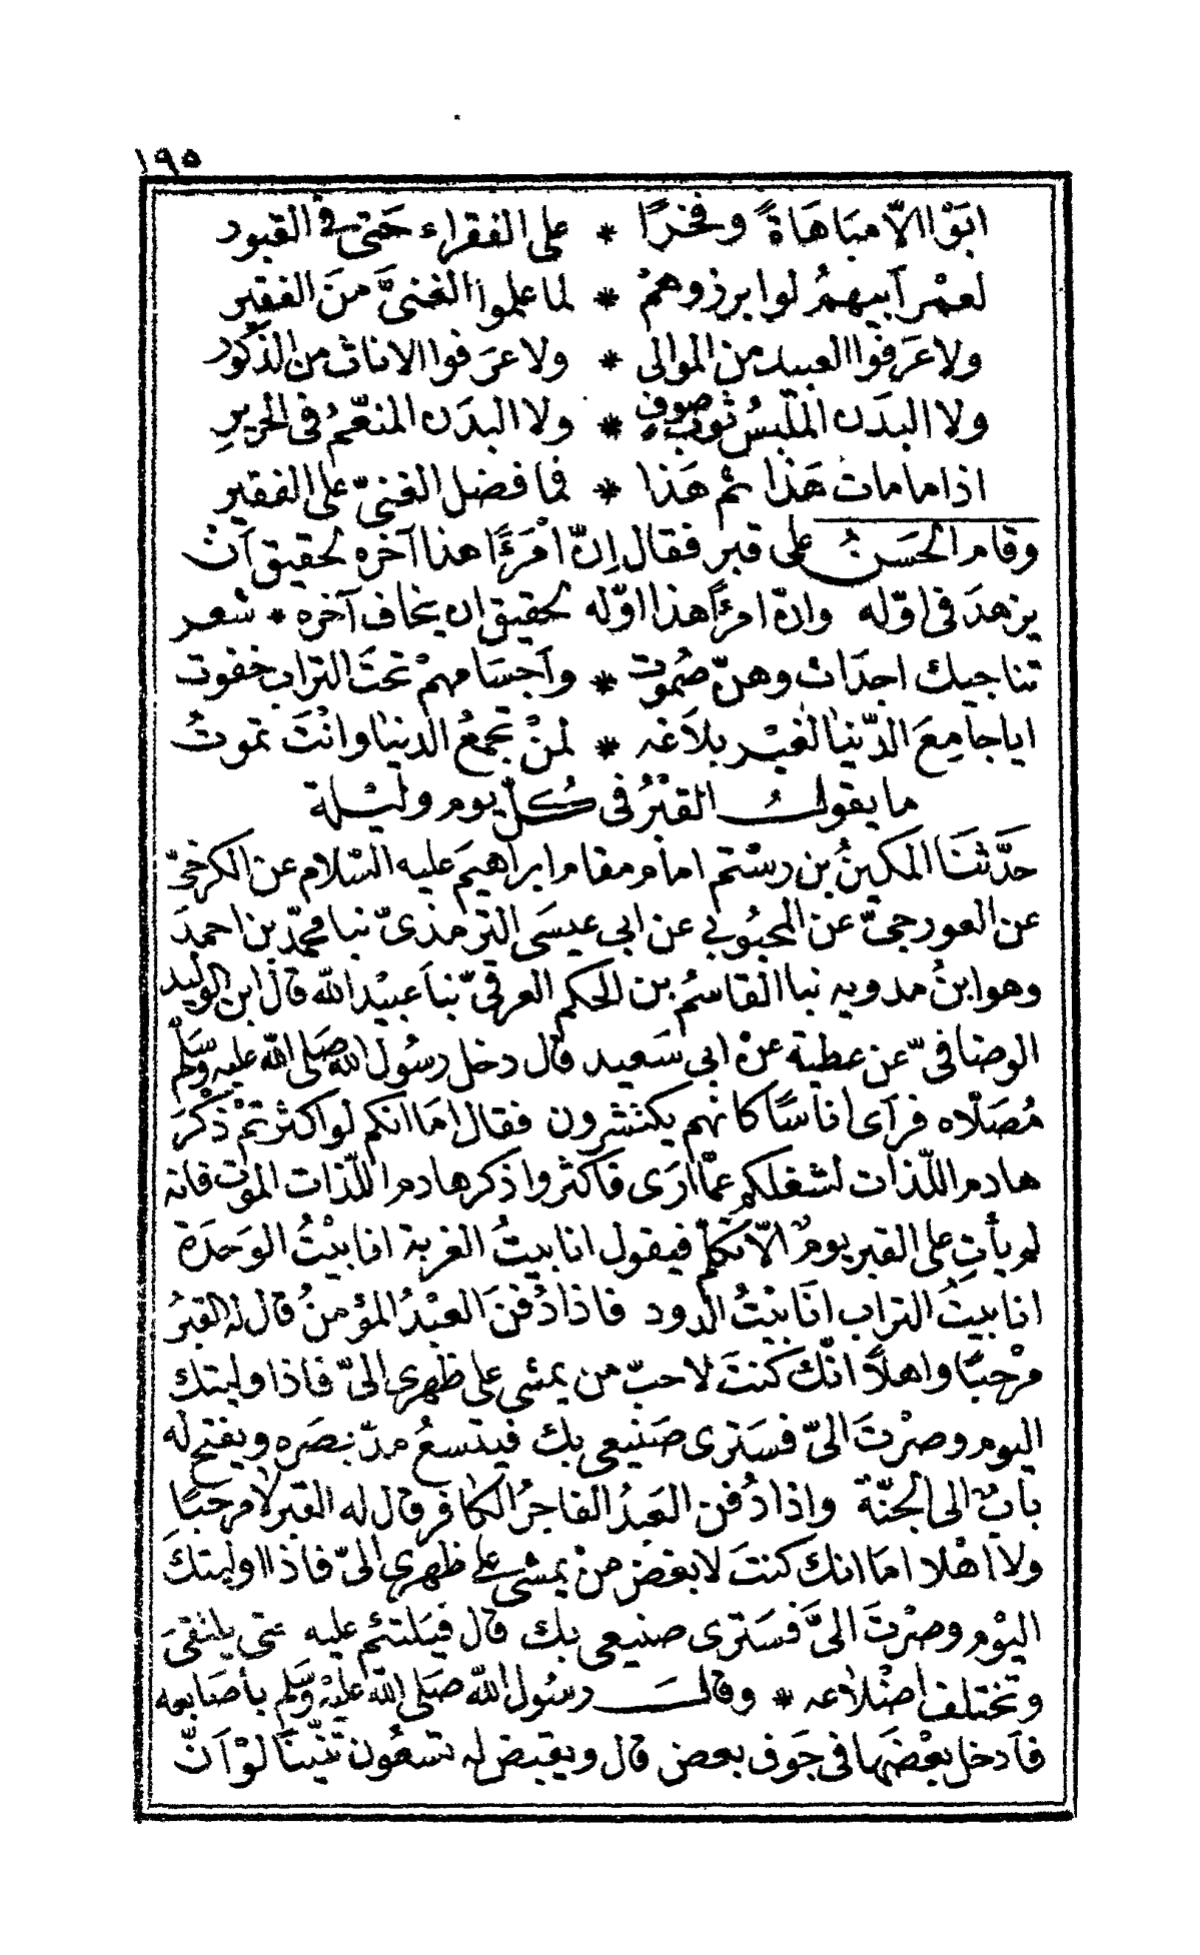 ١٩٥
ابَوْا الاّ مبَاهَاةً وفخرًا * على الفقراء حَتى فى القبور
لعمْر اَبيهمُ لو ابرزوهمْ * لما علموا الغنىَّ منَ الفقير
ولا عَرَفوا العبيد من الموالى * ولا عرَفوا الاناث من الذكور
ولا البدَن الملَبس ثوب صوف * ولا البدَن المنعّمُ فى الحرير
اذا ما مات هَذا ثم هَذا * فما فضل الغنىّ على الفقير
وقام الحَسَنُ على قبر فقال اِنّ امْرَءًا هذا آخره لحقيق اَنْ
يزهدَ فى اوّله وانّ امرًأ هذا اوّله لحقيق ان يخاف آخره * شعر
تناجيك اجدَاث وهنّ صُموت * واَجسَامهمْ تحتَ التراب خفوت
ايا جامِعَ الدّنيا لغيْر بلاَغه * لمنْ تجمعُ الدنيا وانْتَ تموتُ
ما يقولُ القبْرُ فى كُلّ يوم وليْلة
حَدَّثنَا المكينُ بن رسْتم امام مقام ابراهيمَ عليه السّلام عن الكرخىّ
عن العورجىّ عن المحبُوبي عن ابى عيسَى الترمذىّ نبا محمّد بن احمدَ
وهو ابنُ مدويه نبا القاسمُ بن الحكم العرفىّ نبأ عبيْد الله قال ابن الوليد
الوصافىّ عن عطية عنْ ابى سَعيد قال دخل رسُول الله صَلى الله عليه وسَلم
مُصَلّاه فرآى اناسًا كانهم يكتشرون فقال امَا انكم لو اكثرتمْ ذكْرَ
هادم اللّذات لشغلكم عمّا ارَى فاكثروا ذكر هادم اللّذات الموت فانه
لم يأتِ على القبر يومٌ الاّ تكلّم فيقول انا بيتُ الغربة انا بيْتُ الوَحدَة
انا بيتُ التراب انَا بيْتُ الدود فاذا دُفنَ العبْدُ المؤمنُ قال له القبرُ
مرْحبًا واهلاً انّك كنتَ لاحبّ من يمشى على ظهرى الىّ فاذا وليتك
اليوم وصرْتَ الىّ فسَترى صَنيعى بك فيتسعُ مدّ بصَره ويفتح له
بابٌ الى الجنّة واذا دُفن العَبدُ الفاجرُ الكافر قال له القبر لا مرحبًا
ولا اهْلا امَا انك كنتَ لابغض منْ يمشى على ظهرى الىّ فاذا وليتكَ
اليْوم وصرْتَ الىَّ فسَترى صنيعى بك قال فيَلتئم عليه حتى يلتقىَ
وتختلف اضْلاعه * وقال رسُول اللّه صَلى الله عليْه وسَلم بأصَابعه
فاَدخل بعْضهَا فى جَوف بعض قال ويقبض له تسعُون تنّينًا لوْ اَنّ